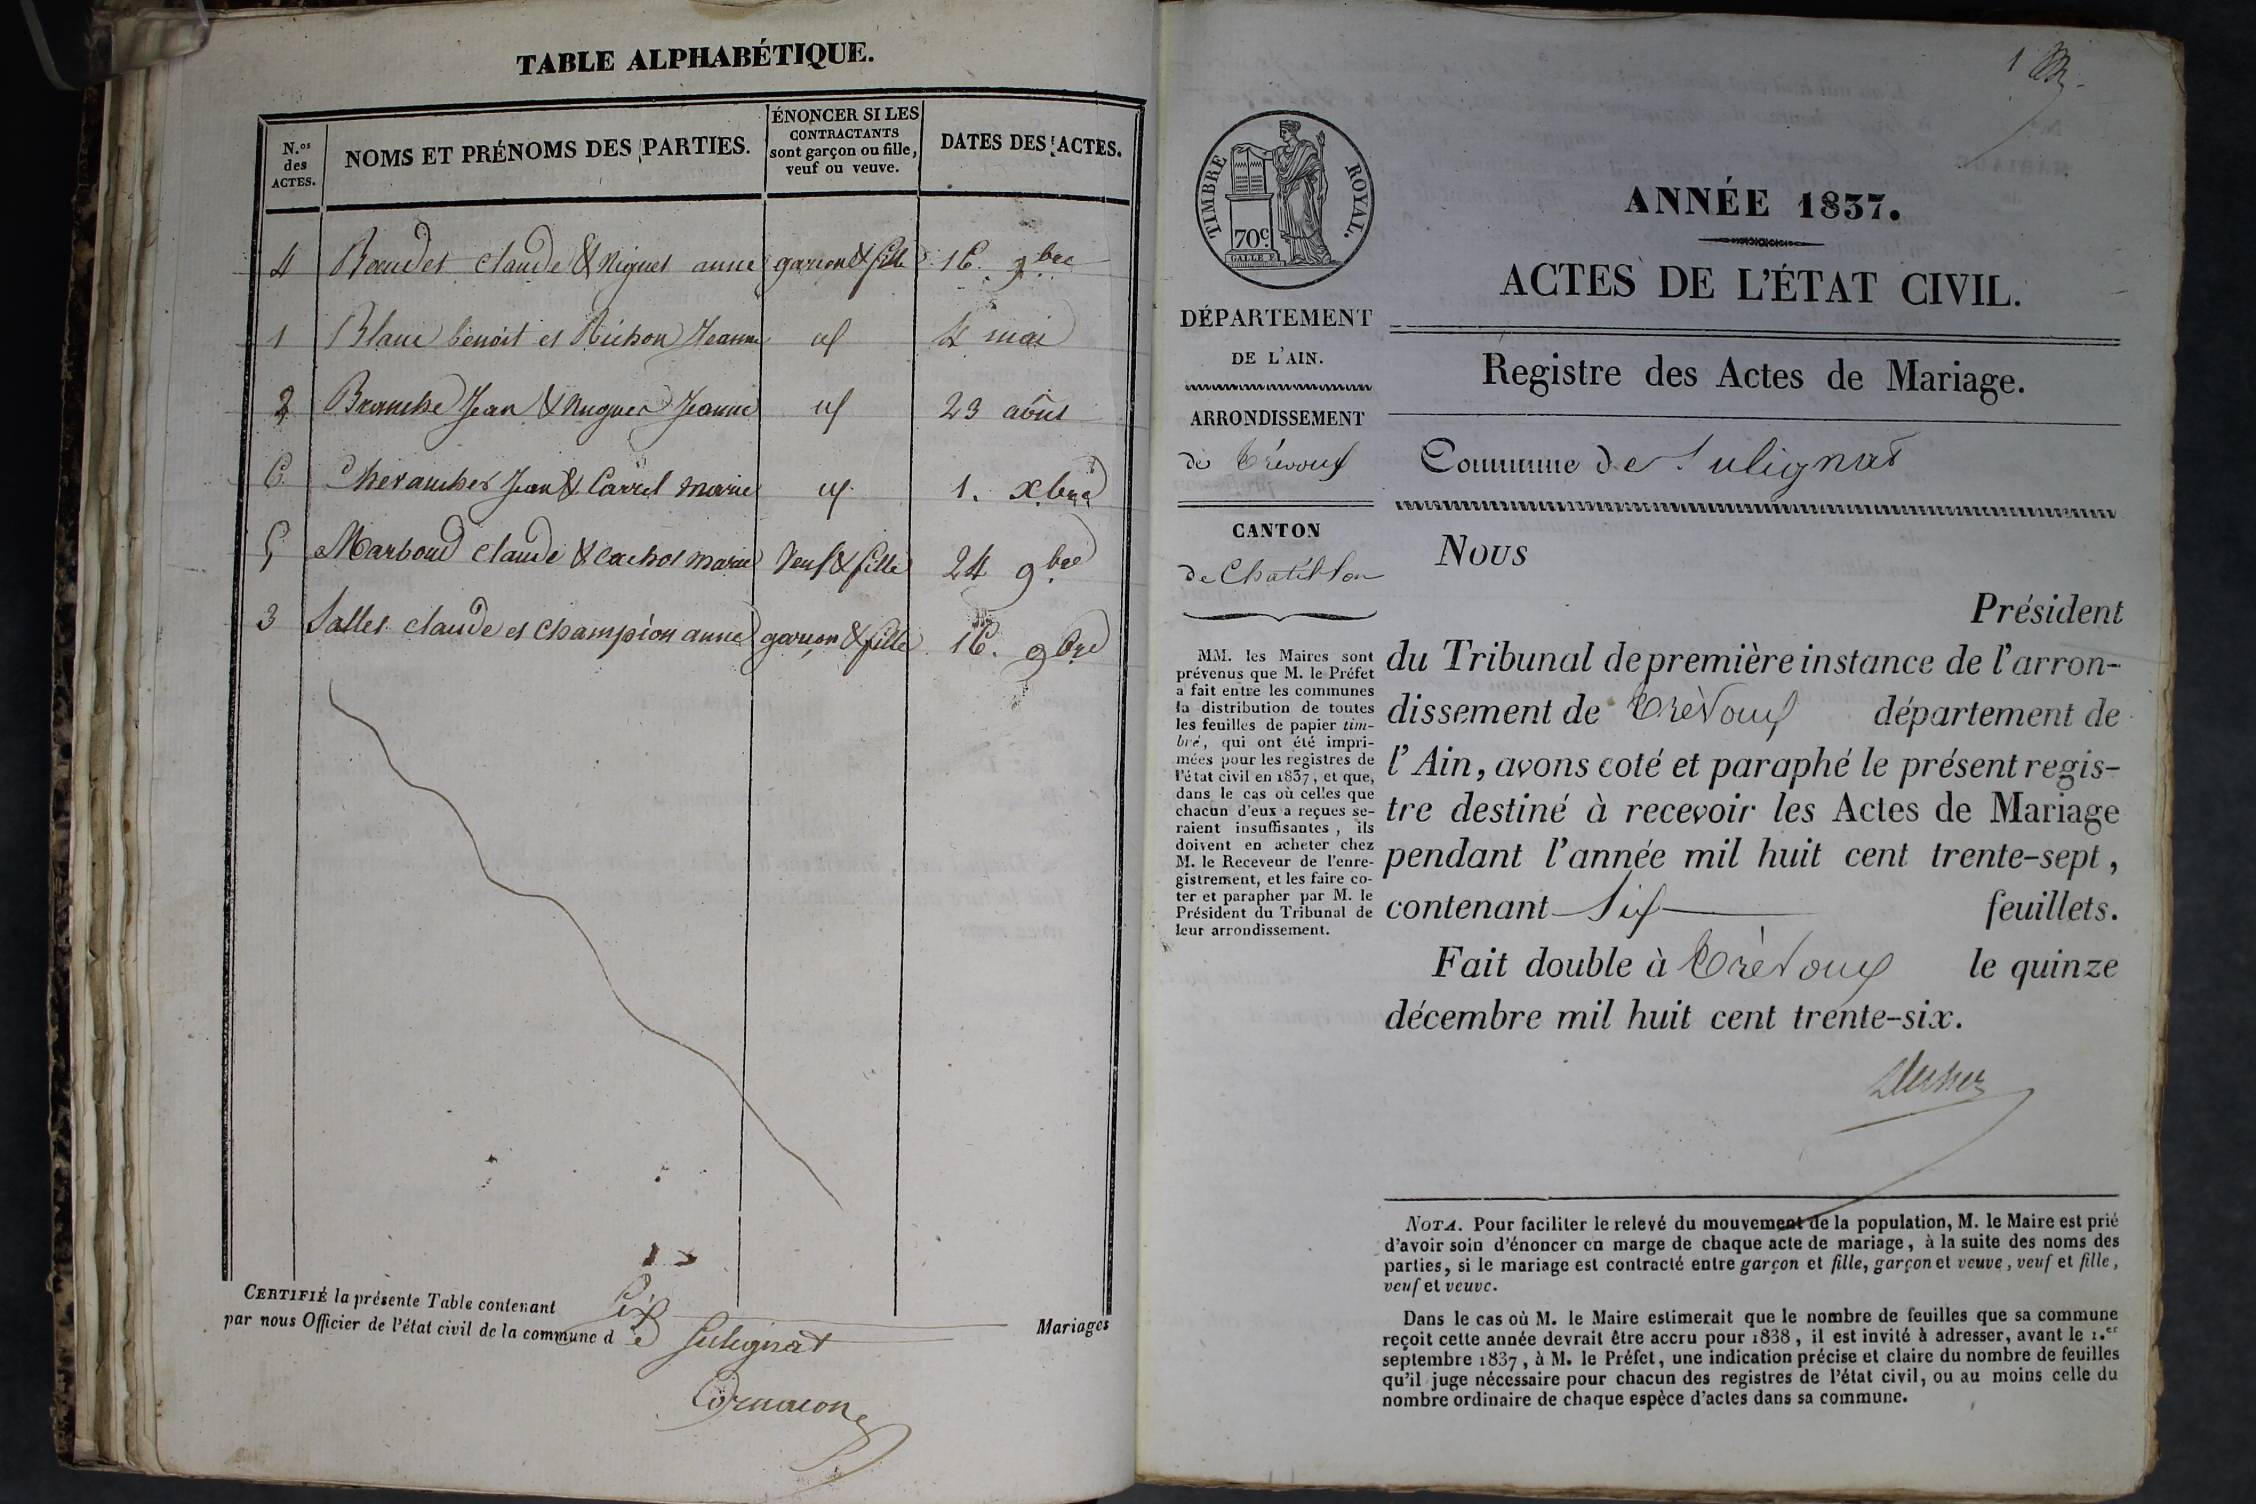 TABLE ALPHABÉTIQUE.
N.os des ACTES.
NOMS ET PRÉNOMS DES PARTIES.
ÉNONCER SI LES
CONTRACTANTS
sont garçon ou fille,
veuf ou veuve.
DATES DES ACTES.
4 Boeudet claude & Niguet anne garson & fille 16. 9bre
1 Blanc benoit et Richon Jeanne id 4 mai
2 Branche Jean & Nugues Jeanne id 23 août
6 Chevauchet Jean & Carrel marie id 1. xbre
5 Marboud claude & Cachot marie Veuf & fille 24 9bre
3 Salles claude et Champion anne garson & fille 16. 9bre
CERTIFIÉ la présente Table contenant Six Mariages
par nous Officier de l'état civil de la commune de Sulignat
1
TIMBRE ROYAL.
70c.
ANNÉE 1837.
ACTES DE L'ÉTAT CIVIL.
Registre des Actes de Mariage.
DÉPARTEMENT
DE L'AIN.
ARRONDISSEMENT
de Trévoux
CANTON
de Chatillon
MM. les Maires sont
prévenus que M. le Préfet
a fait entre les communes
la distribution de toutes
les feuilles de papier tim-
bré, qui ont été impri-
mées pour les registres de
l'état civil en 1837, et que,
dans le cas où celles que
chacun d'eux a reçues se-
raient insuffisantes, ils
doivent en acheter chez
M. le Receveur de l'enre-
gistrement, et les faire co-
ter et parapher par M. le
Président du Tribunal de
leur arrondissement.
Commune de Sulignat
Nous
Président
du Tribunal de première instance de l'arron-
dissement de Trèvoux département de
l'Ain, avons coté et paraphé le présent regis-
tre destiné à recevoir les Actes de Mariage
pendant l'année mil huit cent trente-sept,
contenant Six feuillets.
Fait double à Trèvoux le quinze
décembre mil huit cent trente-six.
NOTA. Pour faciliter le relevé du mouvement de la population, M. le Maire est prié
d'avoir soin d'énoncer en marge de chaque acte de mariage, à la suite des noms des
parties, si le mariage est contracté entre garçon et fille, garçon et veuve, veuf et fille,
veuf et veuve.
Dans le cas où M. le Maire estimerait que le nombre de feuilles que sa commune
reçoit cette année devrait être accru pour 1838, il est invité à adresser, avant le 1.er
septembre 1837, à M. le Préfet, une indication précise et claire du nombre de feuilles
qu'il juge nécessaire pour chacun des registres de l'état civil, ou au moins celle du
nombre ordinaire de chaque espèce d'actes dans sa commune.